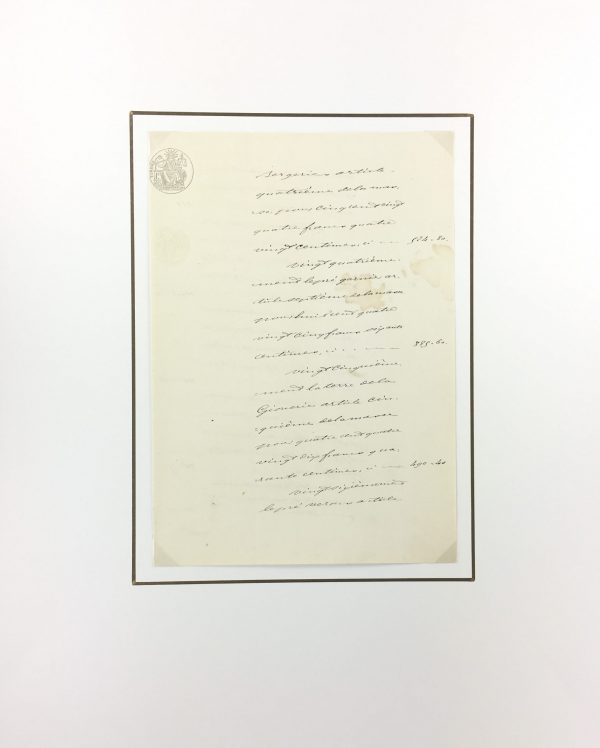 Bergerie article
quatrième de la mas,
se pour cinq cent vingt
quatre francs quatre
vingt centimes, ci — 524-80.
vingt quatrième
ment le pré garnie ar-
ticle septième de la masse
pour huit cent quatre
vingt cinq francs soixante
centimes, ci - - - - 885-60.
vingt cinquième
ment la terre de la
article cin-
quième de la masse
pour quatre cent quatre
vingt dix francs qua-
rante centimes, ci — 490-40
vingt sixièmement
le pré article